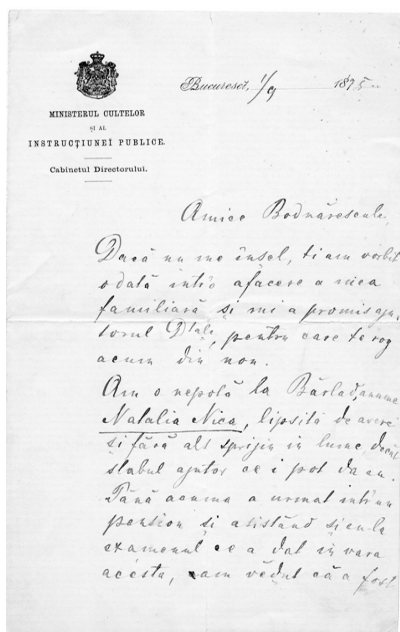 MINISTERUL CULTELOR
ȘI AL
INSTRUCȚIUNEI PUBLICE.
Cabinetul Directorului.
Bucuresci, 1/9 1895
Amice Bodnărescule,
Dacă nu me însel, ti am vorbit
odată intr'o afacere a mea
familiară si mi a promis aju
torul Dtale, pentru care te rog
acum din nou.
Am o nepotă la Bârlad, anume
Natalia Nica, lipsită de avere
si fără alt sprijin in lume, decât
slabul ajutor ce i pot da eu.
Până acuma a urmat intr'un
pension si asistând si eu la
examenul ce a dat in vara
acésta, am vĕdut că a fost